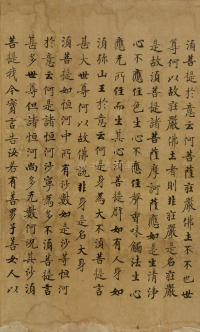 須菩提於意云何菩薩莊嚴佛土不不也世
尊何以故莊嚴佛土者則非莊嚴是名莊嚴
是故須菩提諸菩薩摩訶薩應如是生清淨
心不應住色生心不應住聲香味觸法生心
應无所住而生其心須菩提譬如有人身如
須弥山王於意云何是身為大不須菩提言
甚大世尊何以故佛說非身是名大身
須菩提如恒河中所有沙數如是沙等恒河
於意云何是諸恒河沙寧為多不須菩提言
甚多世尊但諸恒河尚多无數何況其沙須
菩提我今實言告汝若有善男子善女人以